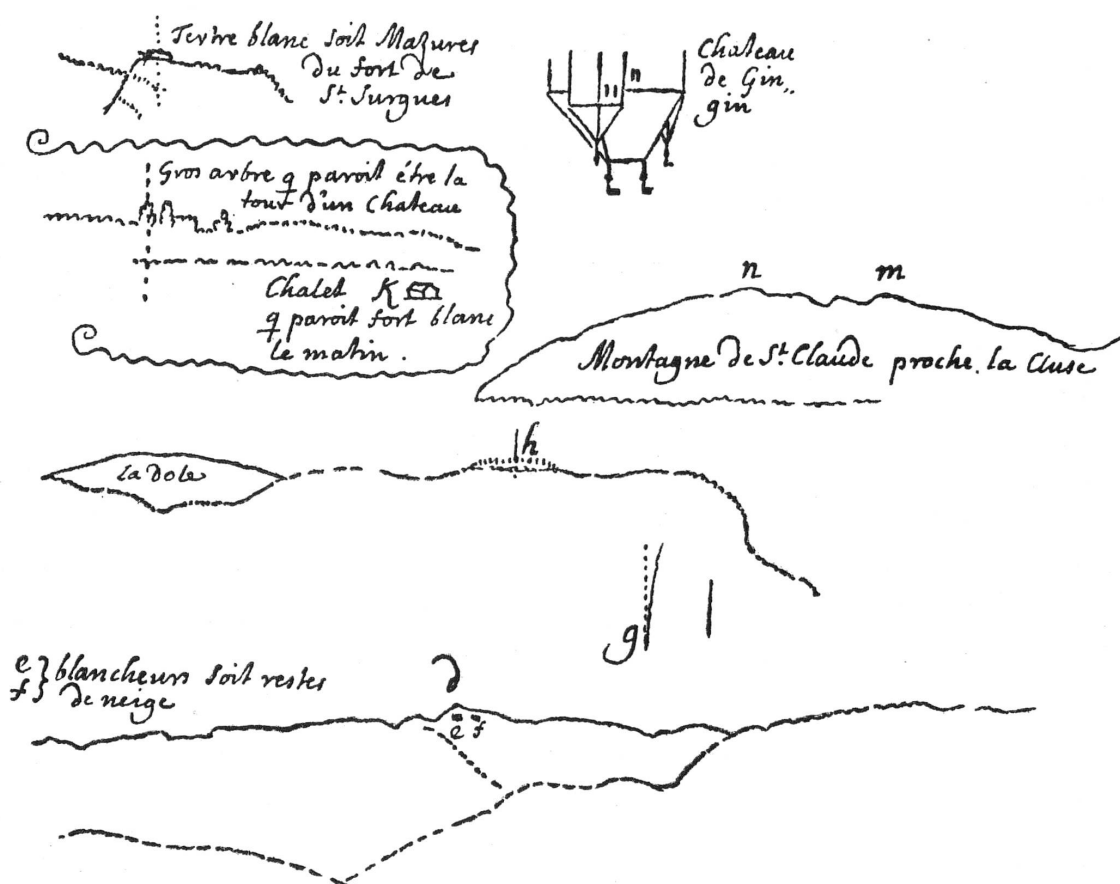 Tertre blanc soit Mazures
du fort de
St. Surgues
Chateau
de Gin,,
gin
n
Gros arbre q paroit être la
tour d'un Chateau
Chalet K
q paroit fort blanc
le matin.
n m
Montagne de St. Claude proche. la Cluse
la Dole
h
g
e } blancheurs soit restes
f } de neige
d
e f